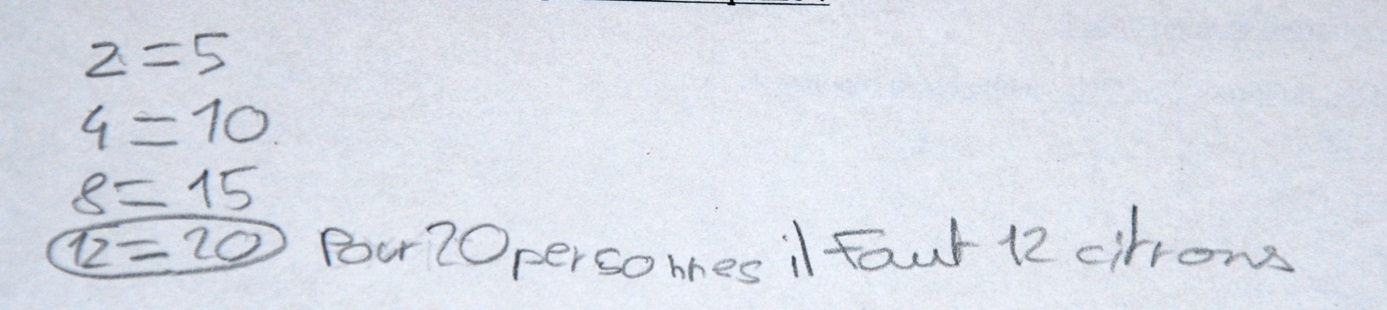 2=5
4=10
8=15
12=20 Pour 20 personnes il Faut 12 citrons